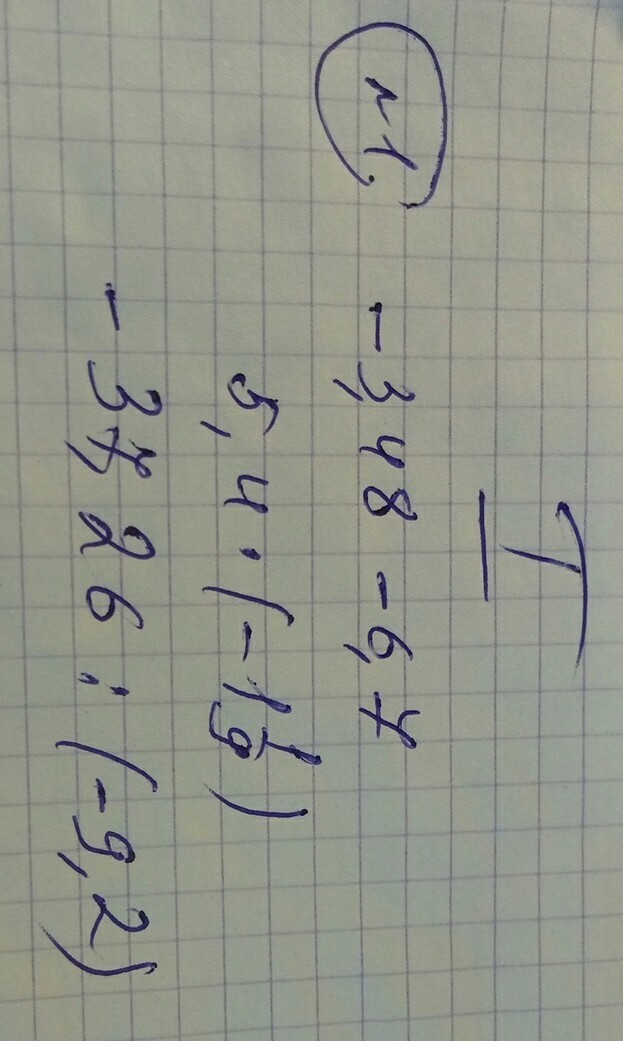 I
№1.
-3,48 - 6,7
5,4 · (-1 1/9)
-37,26 : (-9,2)